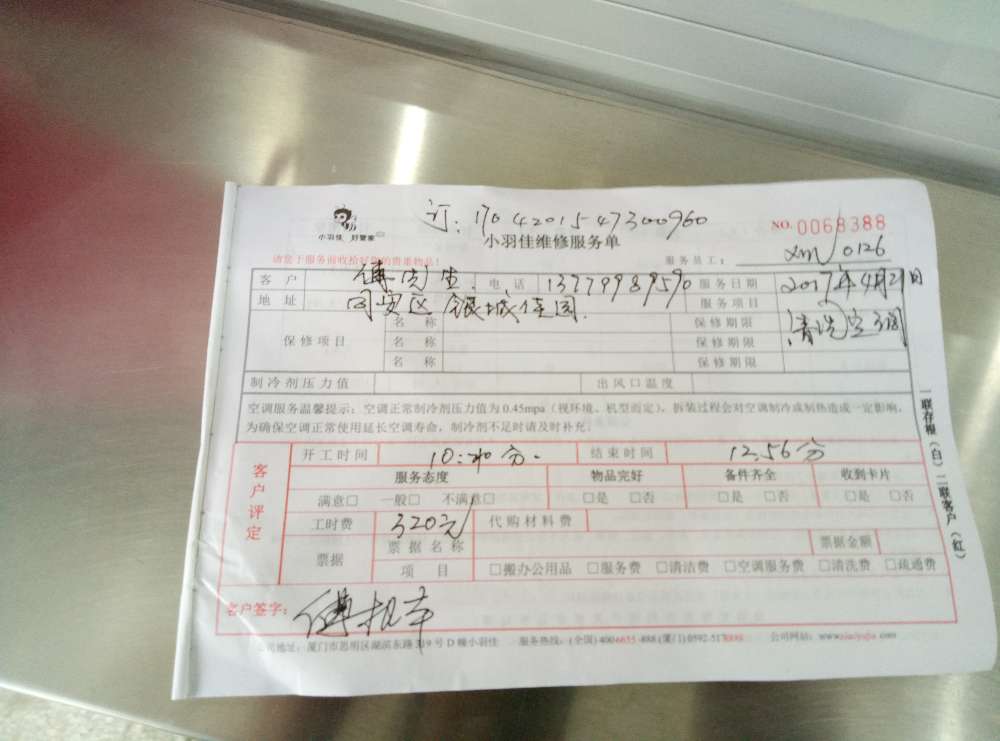 小羽佳 好管家
订:1704201547300960
NO.0068388
小羽佳维修服务单
服务员工: xm 0126
请您于服务前收拾好您的贵重物品!
客户 傅先生 电话 13779989590 服务日期 2017年4月21日
地址 同安区银城佳园. 服务项目 清洗空调
保修项目 名称 保修期限
名称 保修期限
名称 保修期限
制冷剂压力值 出风口温度
空调服务温馨提示:空调正常制冷剂压力值为0.45mpa(视环境、机型而定),拆装过程会对空调制冷或制热造成一定影响,
为确保空调正常使用延长空调寿命,制冷剂不足时请及时补充。
客户评定
开工时间 10:20分. 结束时间 12.56分
服务态度 物品完好 备件齐全 收到卡片
满意□ 一般□ 不满意□ □是 □否 □是 □否 □是 □否
工时费 320元 代购材料费
票据 票据名称 票据金额
项目 □搬办公用品 □服务费 □清洁费 □空调服务费 □清洗费 □疏通费
客户签字: 傅
公司地址:厦门市思明区湖滨东路319号D幢小羽佳 服务热线:(全国)4006655-888(厦门)0592-51 公司网站:www.xiaoyujia.com
一联存根(白)二联客户(红)